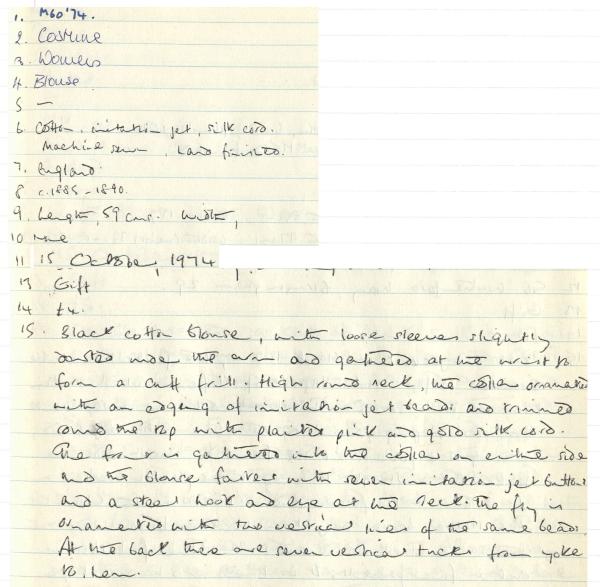 1. M60'74.
2. Costume
3. Womens
4. Blouse
5 —
6. Cotton, imitation jet, silk cord.
Machine sewn, hand finished.
7. England.
8 c.1885 - 1890.
9. Length, 59 cms. Width,
10 None
11 15 October, 1974
13 Gift
14 £4.
15. Black cotton blouse, with loose sleeves slightly
under the arm and gathered at the wrist to
form a cuff frill. High round neck, the collar ornamented
with an edging of imitation jet beads and trimmed
round the top with plaited pink and gold silk cord.
The front is gathered into the collar on either side
and the blouse fastens with seven imitation jet buttons
and a steel hook and eye at the neck. The fly is
ornamented with two vertical lines of the same beads.
At the back there are seven vertical tucks from yoke
to hem.